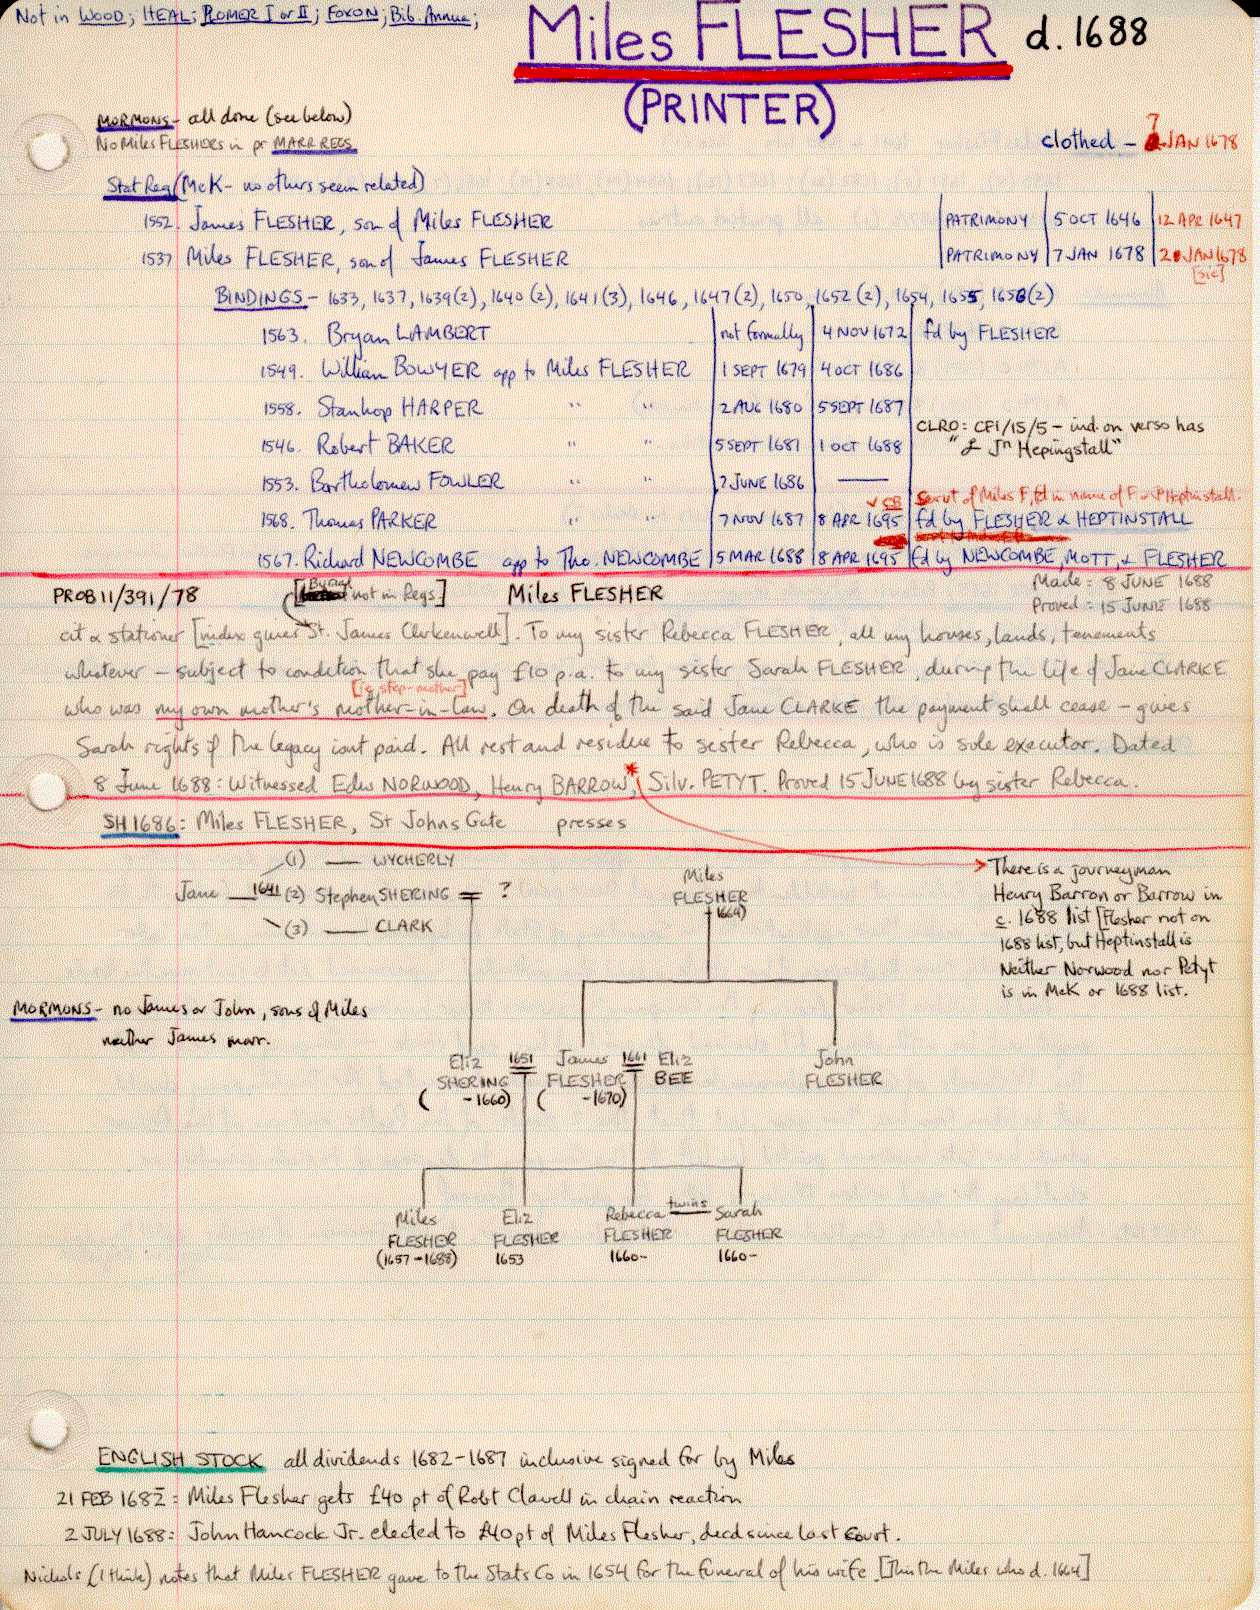 Not in WOOD; HEAL; PLOMER I or II; FOXON; Bib. Annua;
Miles FLESHER d. 1688
(PRINTER)
MORMONS - all done (see below)
No Miles FLESHERS in pr MARR REGS
clothed - 7 JAN 1678
Stat Reg (McK - no others seem related)
1552. James FLESHER, son of Miles FLESHER PATRIMONY 5 OCT 1646 12 APR 1647
1537 Miles FLESHER, son of James FLESHER PATRIMONY 7 JAN 1678 2 JAN 1678
[sic]
BINDINGS - 1633, 1637, 1639(2), 1640(2), 1641(3), 1646, 1647(2), 1650, 1652(2), 1654, 1655, 1656(2)
1563. Bryan LAMBERT not formally 4 NOV 1672 fd by FLESHER
1549. William BOWYER app to Miles FLESHER 1 SEPT 1679 4 OCT 1686
1558. Stanhop HARPER " " 2 AUG 1680 5 SEPT 1687
CLRO: CF1/15/5 - ind. on verso has
1546. Robert BAKER " " 5 SEPT 1681 1 OCT 1688 "& Jn Hepingstall"
1553. Bartholomew FOWLER " " 7 JUNE 1686 —
✓ CB Servt of Miles F, fd in name of F & P Heptinstall.
1568. Thomas PARKER " " 7 NOV 1687 8 APR 1695 fd by FLESHER & HEPTINSTALL
1567. Richard NEWCOMBE app to Tho. NEWCOMBE 5 MAR 1688 8 APR 1695 fd by NEWCOMBE, MOTT, & FLESHER
PROB 11/391/78 [Burial not in Regs] Miles FLESHER Made: 8 JUNE 1688
Proved: 15 JUNE 1688
cit & stationer [index gives St. James Clerkenwell]. To my sister Rebecca FLESHER, all my houses, lands, tenements
whatever - subject to condition that she pay £10 p.a. to my sister Sarah FLESHER, during the life of Jane CLARKE
[ie step-mother]
who was my own mother's mother-in-law. On death of the said Jane CLARKE the payment shall cease - gives
Sarah rights if the legacy isnt paid. All rest and residue to sister Rebecca, who is sole executor. Dated
8 June 1688: Witnessed Edw NORWOOD, Henry BARROW*, Silv. PETYT. Proved 15 JUNE 1688 by sister Rebecca.
SH 1686: Miles FLESHER, St Johns Gate presses
(1) — WYCHERLY
Jane — 1641 (2) Stephen SHERING = ?
(3) — CLARK
Miles
FLESHER
(-1664)
There is a journeyman
Henry Barron or Barrow in
c. 1688 list [Flesher not on
1688 list, but Heptinstall is
Neither Norwood nor Petyt
is in McK or 1688 list.
MORMONS - no James or John, sons of Miles
neither James marr.
Eliz 1651 James 1661 Eliz John
SHERING = FLESHER = BEE FLESHER
( -1660) ( -1670)
Miles Eliz Rebecca twins Sarah
FLESHER FLESHER FLESHER FLESHER
(1657-1688) 1653 1660- 1660-
ENGLISH STOCK all dividends 1682-1687 inclusive signed for by Miles
21 FEB 1682: Miles Flesher gets £40 pt of Robt Clavell in chain reaction
2 JULY 1688: John Hancock Jr. elected to £40 pt of Miles Flesher, decd since last Court.
Nichols (I think) notes that Miles FLESHER gave to the Stats Co in 1654 for the funeral of his wife. [This the Miles who d. 1664]